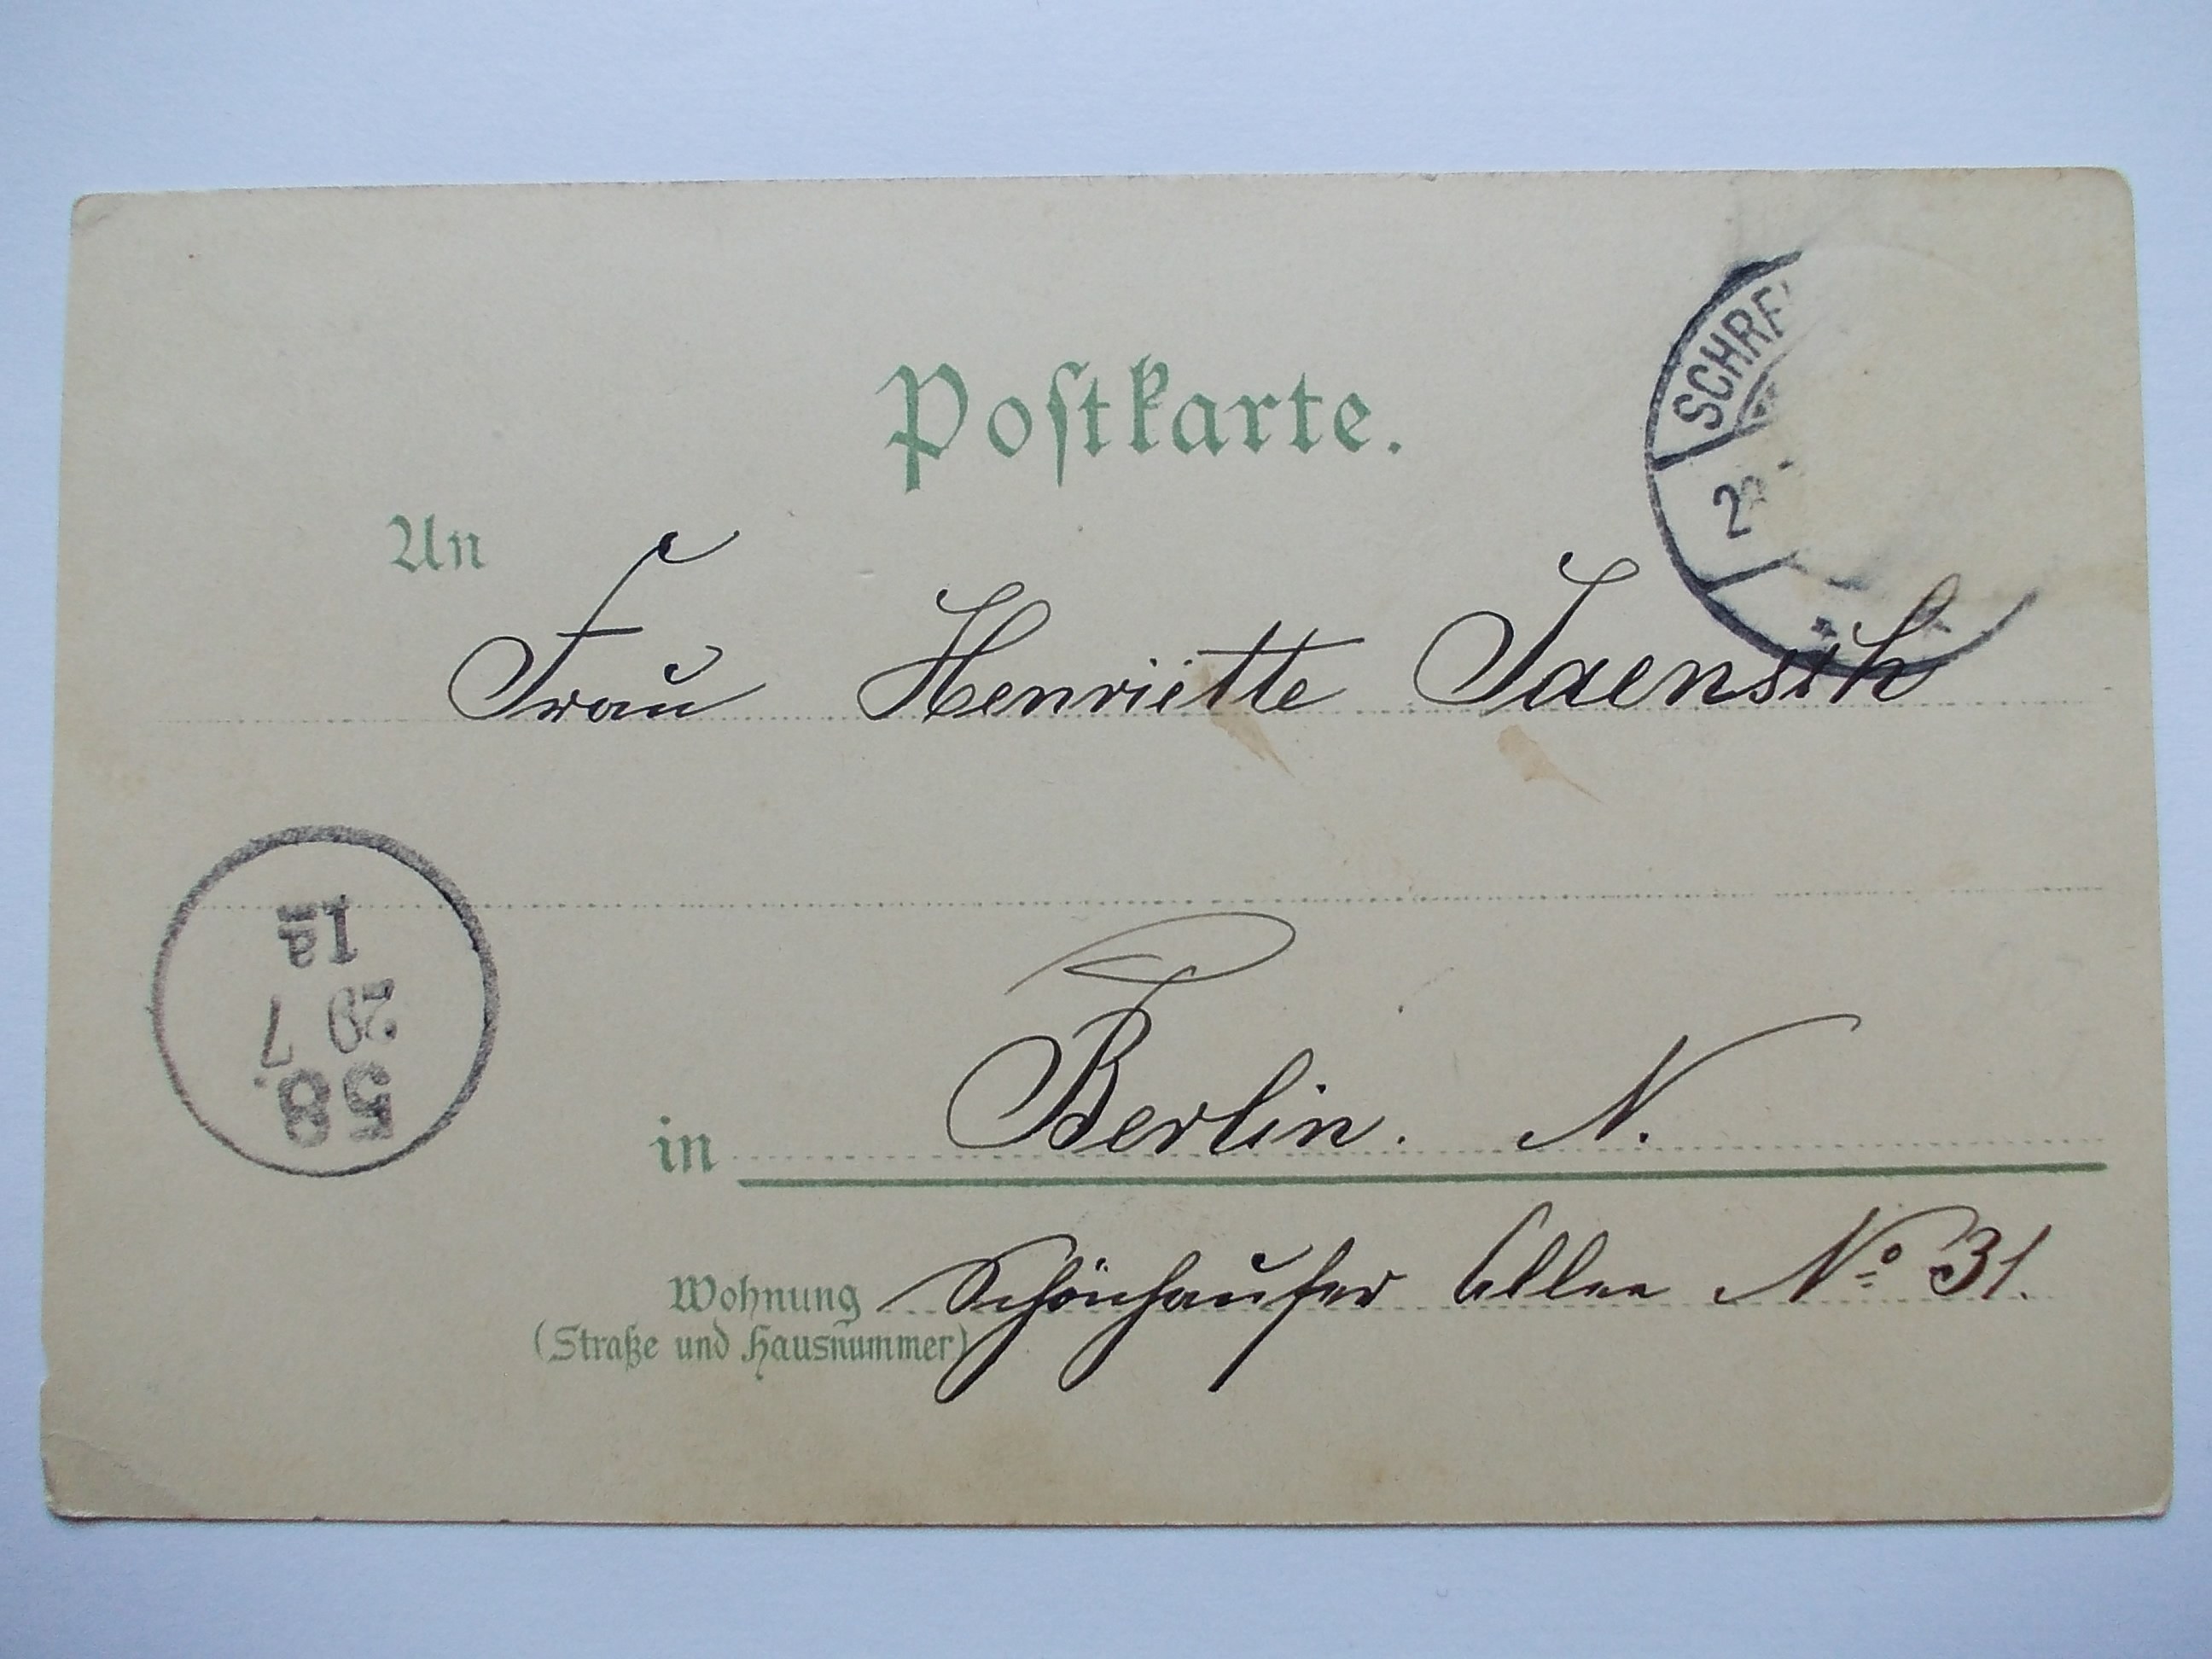 SCHRE
Postkarte.
2
An
Frau Henriette Jaensch
1a
29 7
58.
in Berlin. N.
Wohnung Schönhauser Allee No 31.
(Straße und Hausnummer)